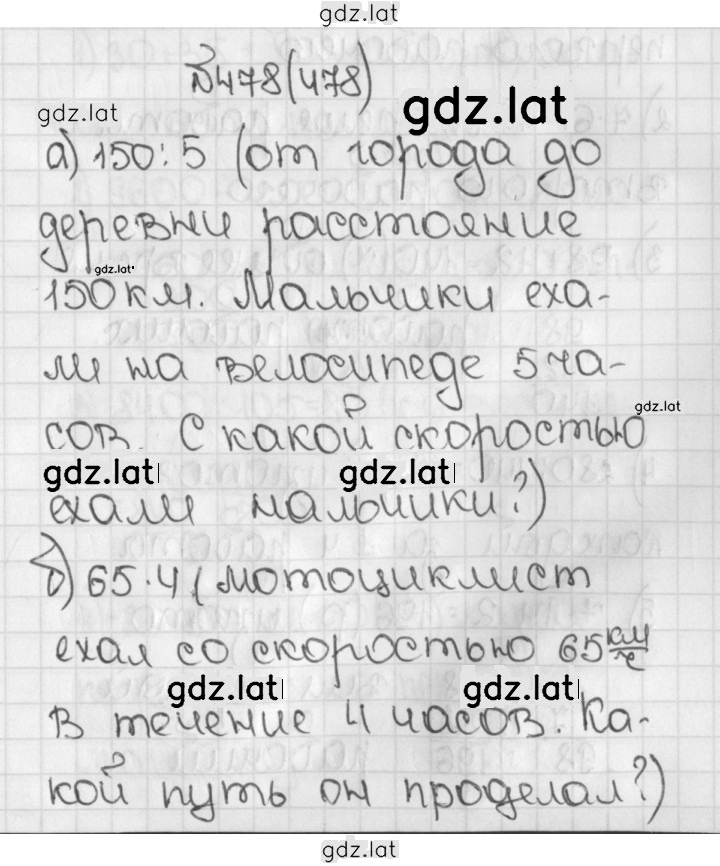 gdz.lat
№478(478)
gdz.lat
gdz.lat
а) 150:5 (от города до
деревни расстояние
gdz.lat
150 км. Мальчики еха-
ли на велосипеде 5 ча-
gdz.lat
сов. С какой скоростью
gdz.lat gdz.lat
ехали мальчики?)
б) 65·4 (мотоциклист
ехал со скоростью 65 км/ч
gdz.lat gdz.lat
в течение 4 часов. Ка-
кой путь он проделал?)
gdz.lat